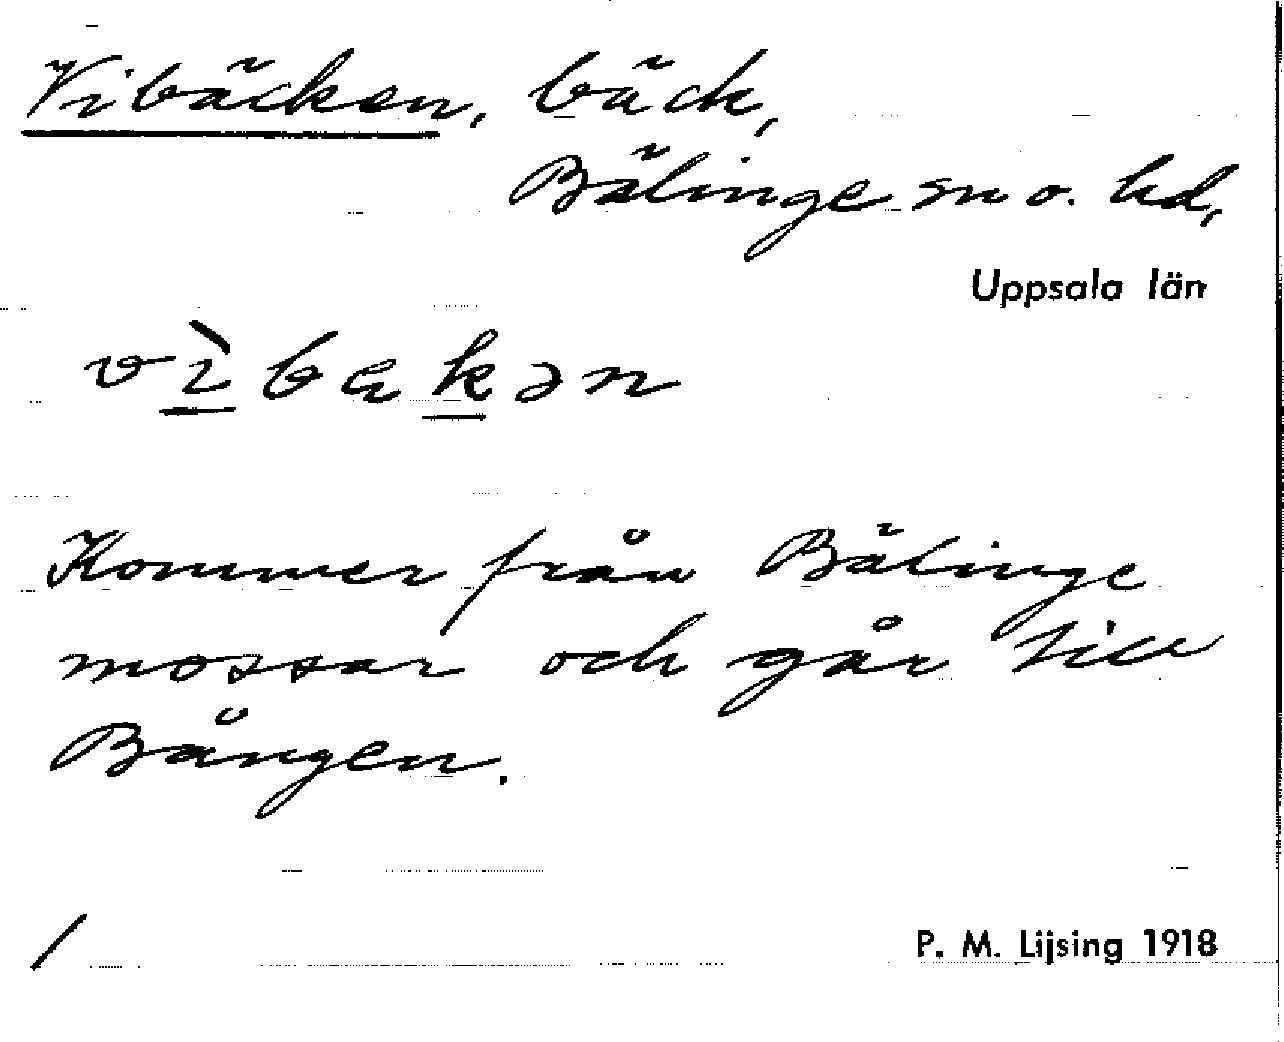 Vibäcken, bäck,
Bälinge sn o. hd,
Uppsala län
vìbakən
Kommer från Bälinge
mossar och går till
Bången.
/
P. M. Lijsing 1918